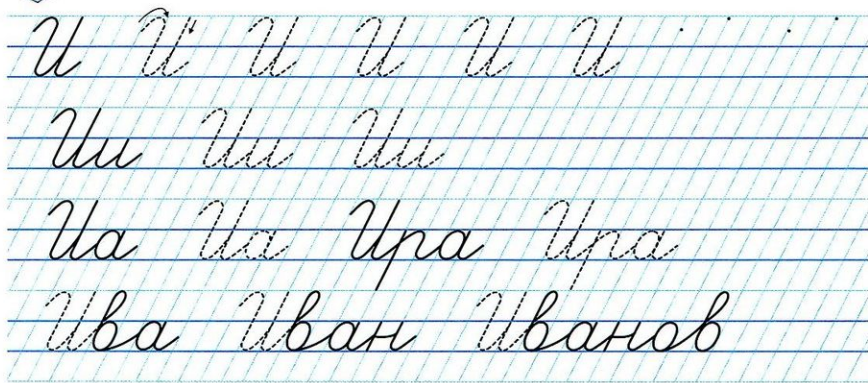 И И И И И И
Ии Ии Ии
Иа Иа Ира Ира
Ива Иван Иванов